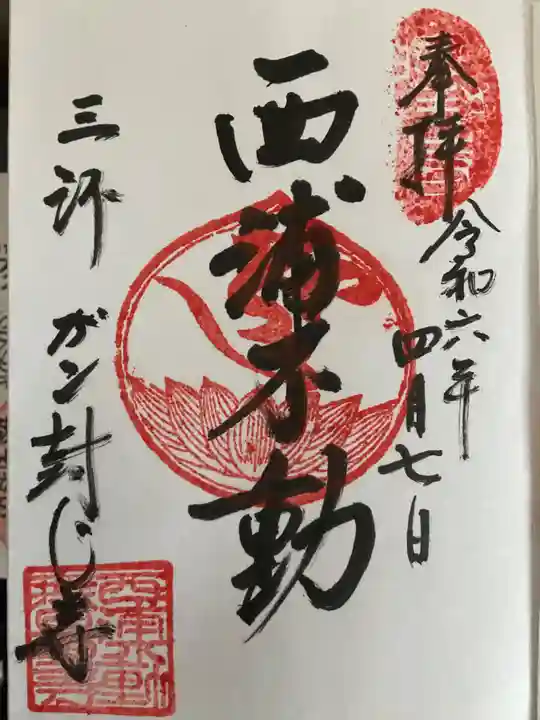 奉拝
令和六年
四月七日
西浦不動
三河
ガン封じ寺